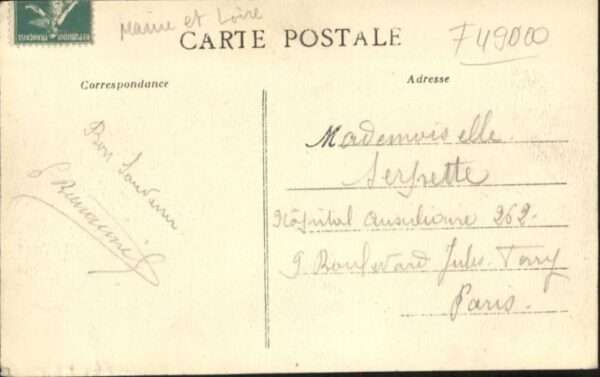 Maine et Loire
CARTE POSTALE
F49000
Correspondance
Adresse
Bon Souvenir
Mademoiselle
Serpette
Hôpital Auxiliaire 262.
9. Boulevard Jules
Paris.